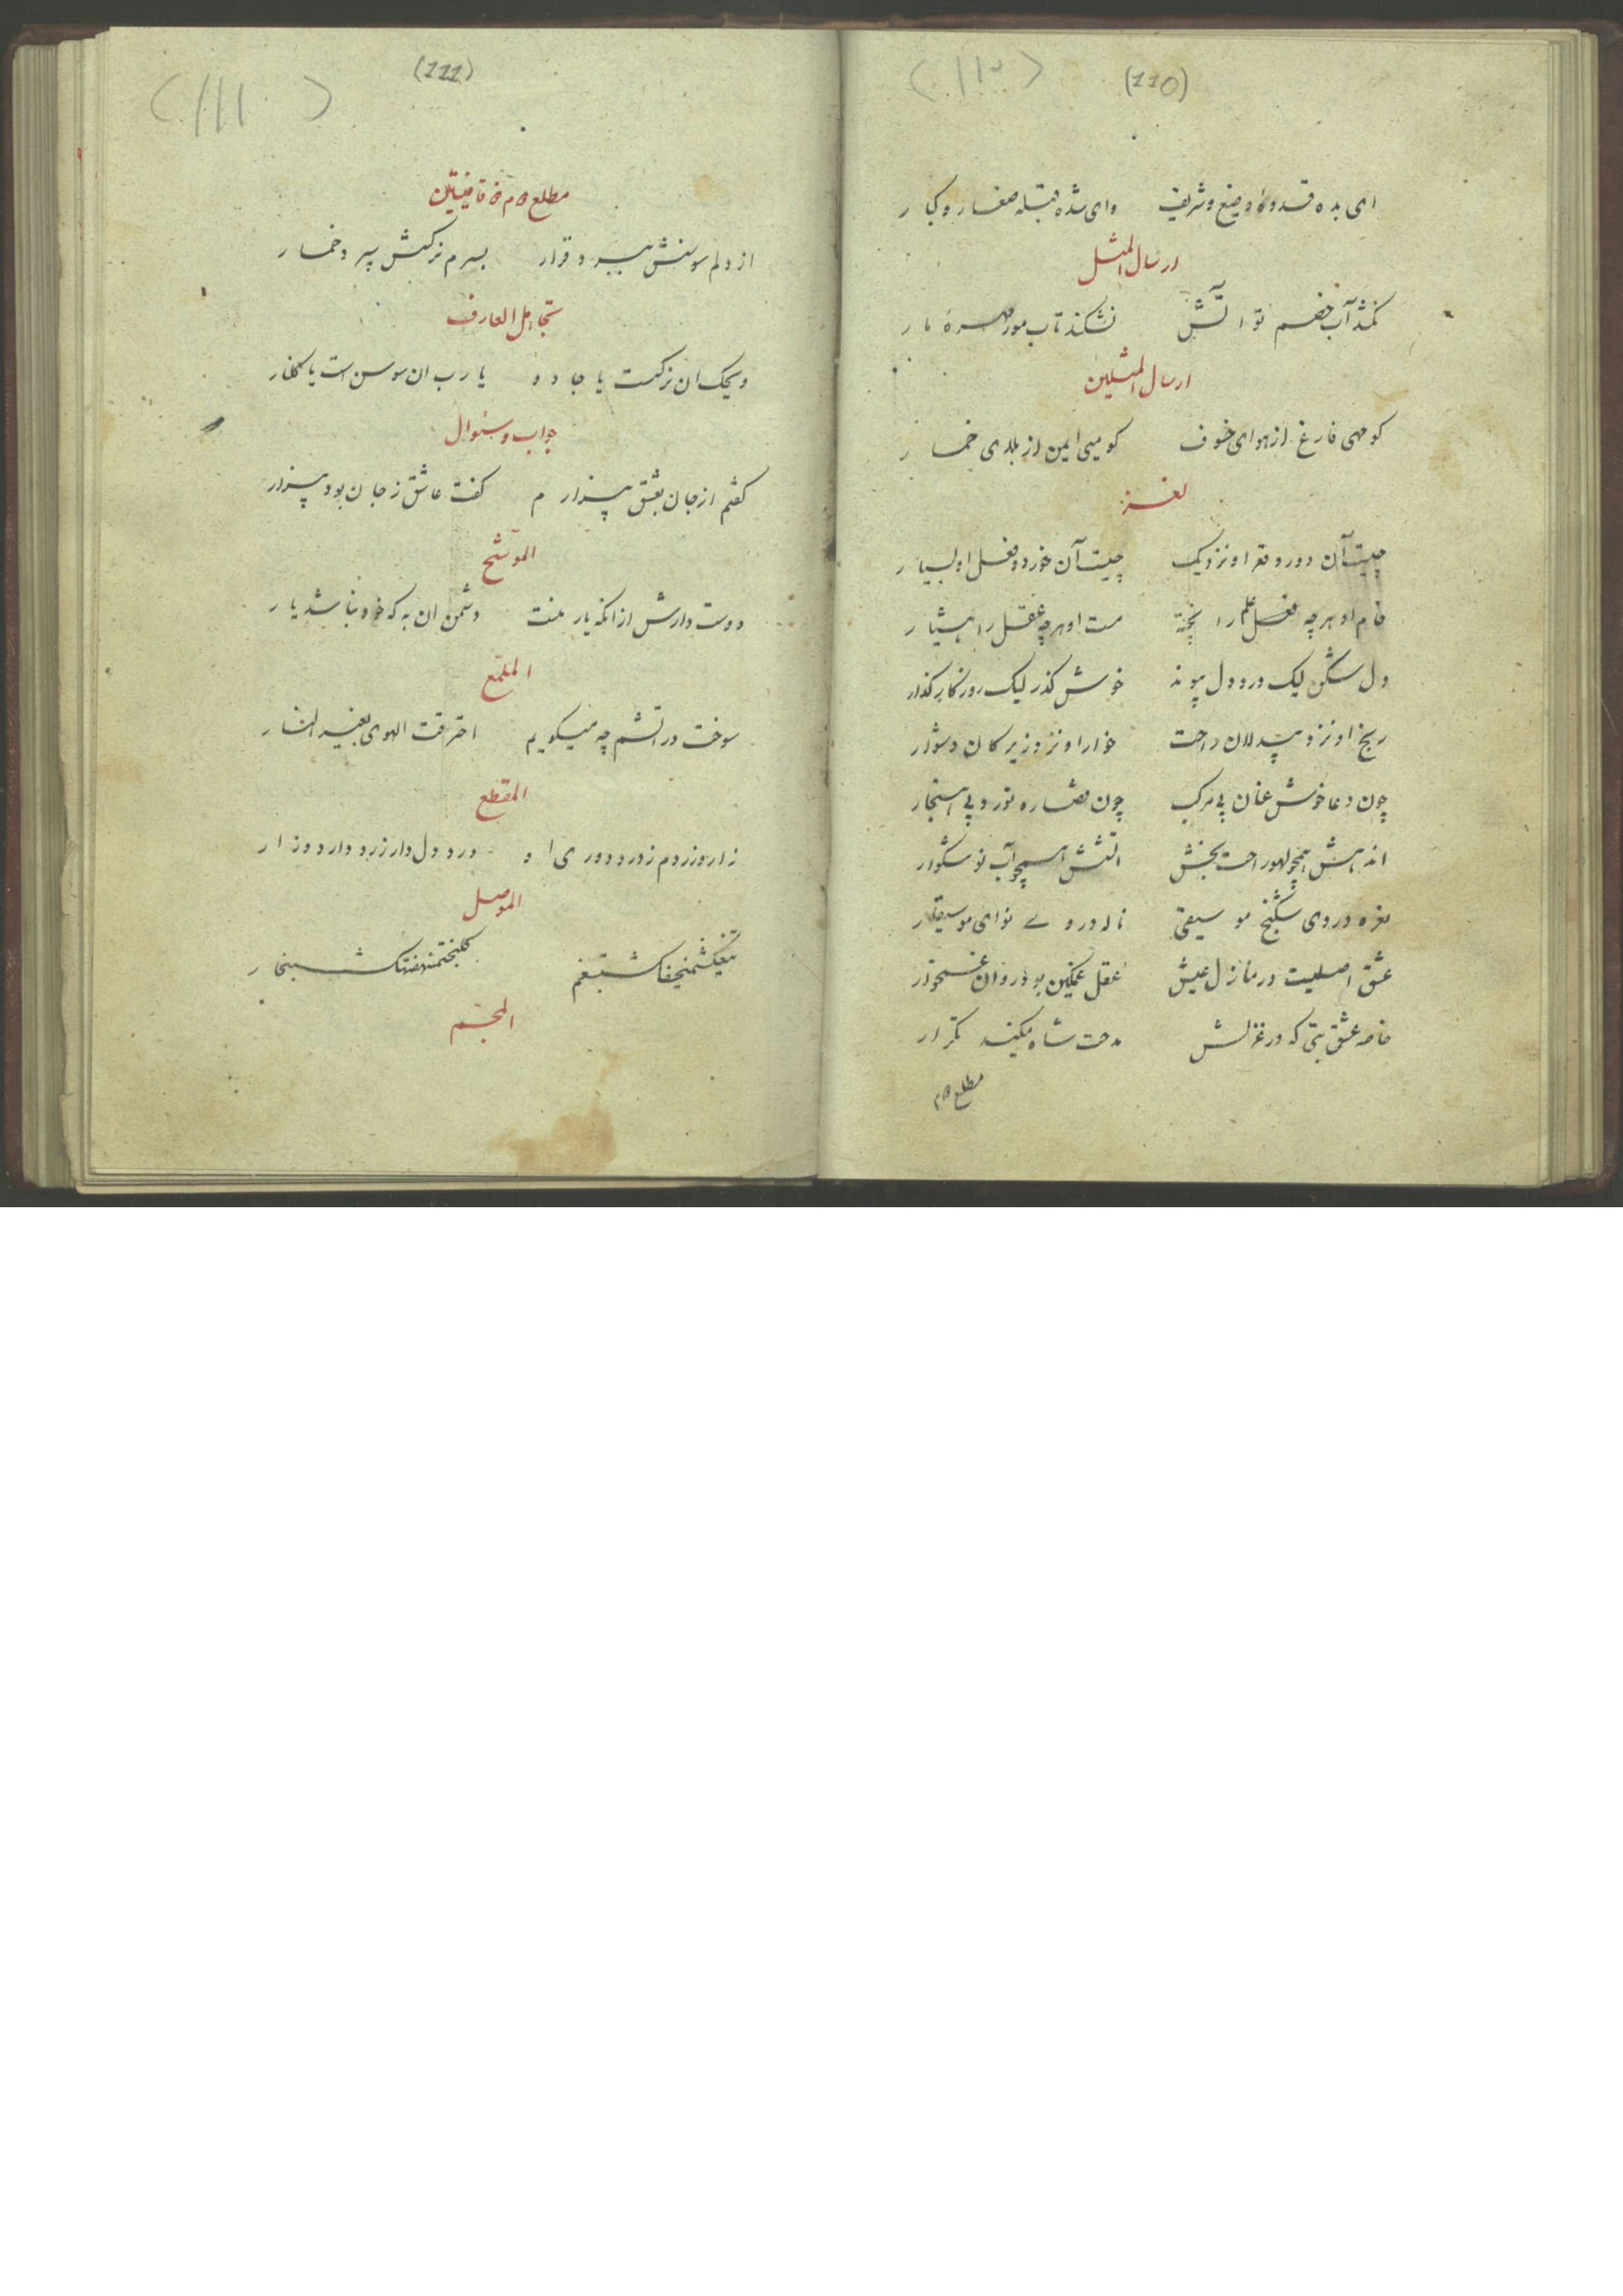 (110)
ای بده قدوهٔ وضیع و شریف وای شده قبله صغار و کبار
ارسال المثل
نکشد آب خصم تو آتش نشکند تاب مور مهرهٔ مار
ارسال المثلین
کو مهی فارغ از هوای خسوف کو میی ایمن از بلای خمار
لغز
چیست آن دور و قعر او نزدیک چیست آن خورد و فعل او بسیار
خام او هرچه علم را پخته مست او هرچه عقل را هشیار
دل شکن لیک درد دل پیوند خوش گذر لیک روزگار گذار
رنج او نزد بیدلان راحت خوار او نزد زیرکان دشوار
چون دعا خوش عنان بی مرکب چون قضا ره نورد بی هنجار
اندهش همچو لهو راحت بخش آتشش همچو آب نوشگوار
نعره در وی شکنج موسیقی ناله در وی نوای موسیقار
عشق اصلیست در منازل عیش عقل غمگین بود روان غمخوار
خاصه عشق بتی که در غزلش مدحت شاه میکند تکرار
مطلع دوم
(111)
مطلع دوم ذو قافیتین
از دلم سوسنش ببرد قرار بسرم نرکسش سپرد خمار
تجاهل العارف
ویحک ان نرکست یا جادو یا رب ان سوسن است یا گلنار
جواب و سئوال
کفتم از جان بعشق بیزارم کفت عاشق ز جان بود بیزار
الموشح
دوست دارش از انکه یار منت دشمن ان به که خود نباشد یار
الملمع
سوخت در اتشم چه میکویم احترقت الهوی بغیر النار
المقطع
زار و زردم ز درد دوری او درد دل دار زرد دارد و زار
الموصل
المجسم